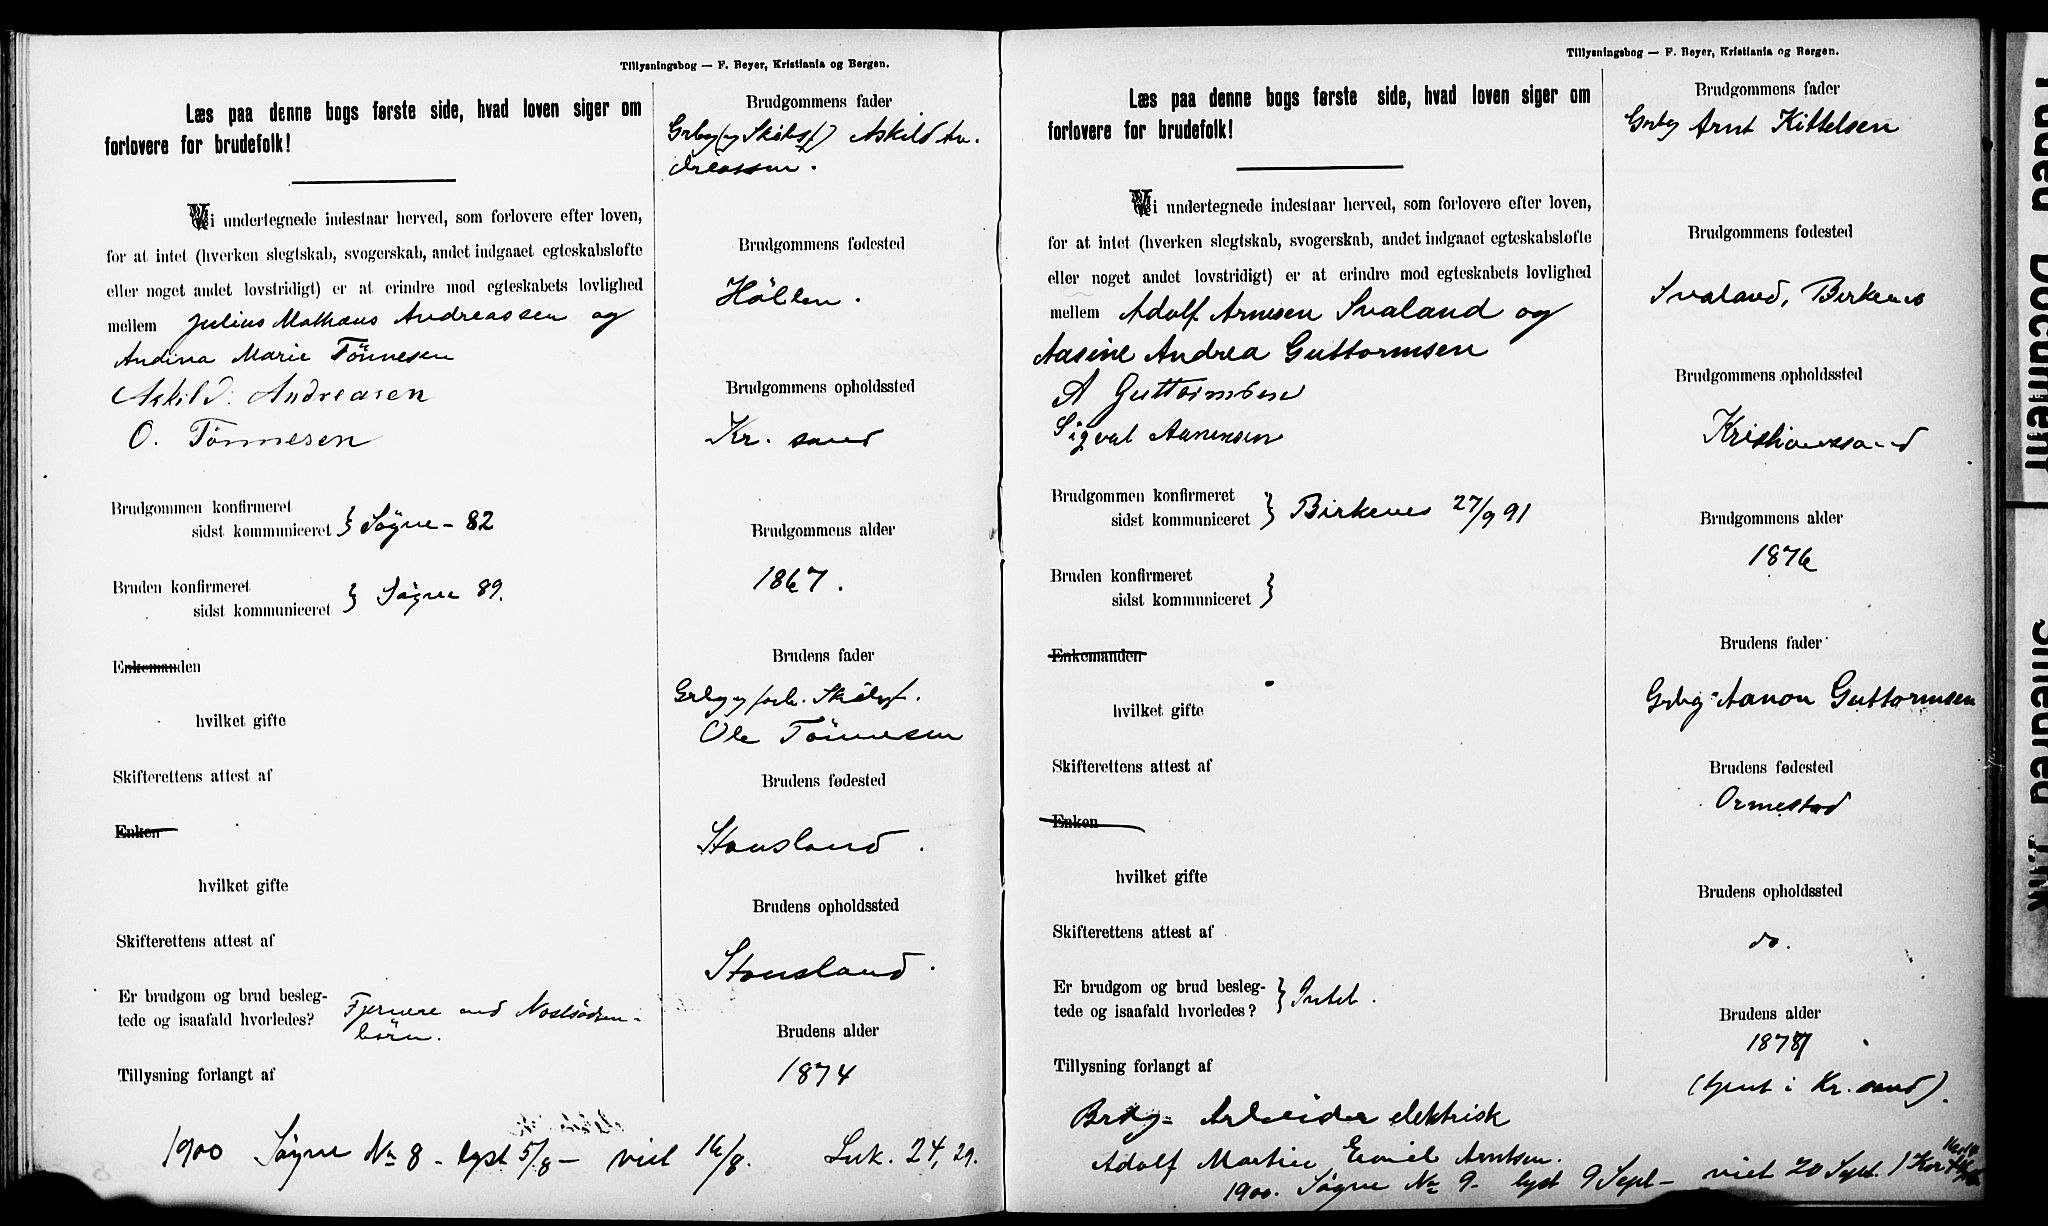 Tillysningsbog — F. Beyer, Kristiania og Bergen.
Læs paa denne bogs første side, hvad loven siger om
forlovere for brudefolk!
Vi undertegnede indestaar herved, som forlovere efter loven,
for at intet (hverken slegtskab, svogerskab, andet indgaaet egteskabsløfte
eller noget andet lovstridigt) er at erindre mod egteskabets lovlighed
mellem Julius Mathæus Andreassen og
Andina Marie Tönnesen
Askild Andreasen
O. Tönnesen
Brudgommen konfirmeret
sidst kommuniceret } Søgne - 82
Bruden konfirmeret
sidst kommuniceret } Søgne 89.
Enkemanden
hvilket gifte
Skifterettens attest af
Enken
hvilket gifte
Skifterettens attest af
Er brudgom og brud besleg-
tede og isaafald hvorledes? Fjernere end Næstsödsken-
börn.
Tillysning forlangt af
Brudgommens fader
Grbg (og Skibsf) Askild An-
dreassen.
Brudgommens fødested
Höllen.
Brudgommens opholdssted
Kr. sand
Brudgommens alder
1867.
Brudens fader
Grbg og forh. Skibsf.
Ole Tönnesen
Brudens fødested
Stausland.
Brudens opholdssted
Stausland.
Brudens alder
1874
1900 Søgne No 8 - lyst 5/8 - viet 16/8. Luk. 24, 29.
Tillysningsbog — F. Beyer, Kristiania og Bergen.
Læs paa denne bogs første side, hvad loven siger om
forlovere for brudefolk!
Vi undertegnede indestaar herved, som forlovere efter loven,
for at intet (hverken slegtskab, svogerskab, andet indgaaet egteskabsløfte
eller noget andet lovstridigt) er at erindre mod egteskabets lovlighed
mellem Adolf Arntsen Svaland og
Aasine Andrea Guttormsen
A Guttormsen
Sigval Aanensen
Brudgommen konfirmeret
sidst kommuniceret } Birkenes 27/9 91
Bruden konfirmeret
sidst kommuniceret }
Enkemanden
hvilket gifte
Skifterettens attest af
Enken
hvilket gifte
Skifterettens attest af
Er brudgom og brud besleg-
tede og isaafald hvorledes? } Intet.
Tillysning forlangt af
Brudgommens fader
Grbg Arnt Kittelsen
Brudgommens fødested
Svaland, Birkenes
Brudgommens opholdssted
Kristianssand
Brudgommens alder
1876
Brudens fader
Grbg Aanon Guttormsen
Brudens fødested
Ormestad
Brudens opholdssted
do.
Brudens alder
1878
(tjent i Kr. sand).
Brdg = Arbeider elektrisk
Adolf Martin Emil Arntsen.
1900. Søgne No 9 - lyst 9 Sept - viet 20 Sept. 1 Kor
Faded Document
Smeared Ink